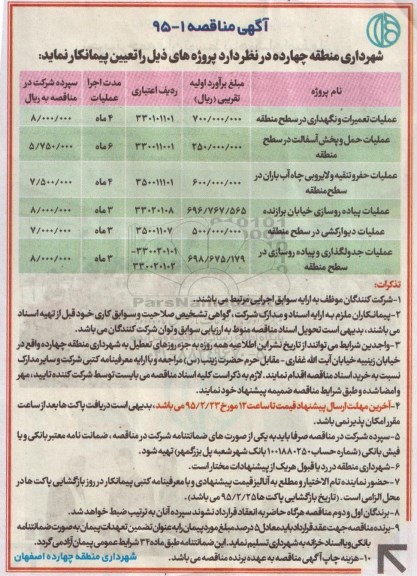 آگهی مناقصه ۱-۹۵
شهرداری منطقه چهارده در نظر دارد پروژه های ذیل را تعیین پیمانکار نماید:
نام پروژه | مبلغ برآورد اولیه تقریبی (ریال) | ردیف اعتباری | مدت اجرا عملیات | سپرده شرکت در مناقصه به ریال
عملیات تعمیرات و نگهداری در سطح منطقه | ۷۰۰/۰۰۰/۰۰۰ | ۳۳۰۱۰۱۱۰۱ | ۴ ماه | ۸/۰۰۰/۰۰۰
عملیات حمل و پخش آسفالت در سطح منطقه | ۲۵۰/۰۰۰/۰۰۰ | ۳۳۰۰۱۱۰۰۱ | ۶ ماه | ۵/۷۵۰/۰۰۰
عملیات حفر و تنقیه و لایروبی چاه آب باران در سطح منطقه | ۶۰۰/۰۰۰/۰۰۰ | ۳۵۰۰۱۱۱۰۱ | ۴ ماه | ۷/۵۰۰/۰۰۰
عملیات پیاده روسازی خیابان برازنده | ۶۹۶/۷۶۷/۵۶۵ | ۳۳۰۲۰۱۰۸ | ۳ ماه | ۸/۰۰۰/۰۰۰
عملیات دیوارکشی در سطح منطقه | ۵۰۰/۰۰۰/۰۰۰ | ۳۵۰۰۱۱۰۷ | ۳ ماه | ۷/۰۰۰/۰۰۰
عملیات جدولگذاری و پیاده روسازی در سطح منطقه | ۶۹۸/۶۷۵/۱۷۹ | ۳۳۰۰۲۰۱۰۱- ۳۳۰۰۲۰۱۰۲ | ۳ ماه | ۸/۰۰۰/۰۰۰
تذکرات:
۱-شرکت کنندگان موظف به ارایه سوابق اجرایی مرتبط می باشند.
۲-پیمانکاران ملزم به ارایه اسناد و مدارک شرکت، گواهی تشخیص صلاحیت و سوابق کاری خود قبل از تهیه اسناد
می باشند، بدیهی است تحویل اسناد مناقصه منوط به ارزیابی سوابق و توان شرکت کنندگان می باشد.
۳-واجدین شرایط می توانند از تاریخ نشر این اطلاعیه همه روزه به جزء روزهای تعطیل به شهرداری منطقه چهارده واقع در
خیابان زینبیه خیابان آیت الله غفاری - مقابل حرم حضرت زینب (س) مراجعه و با ارایه معرفینامه کتبی شرکت و سایر مدارک
نسبت به خرید اسناد مناقصه اقدام نمایند. لازم به ذکر است کلیه اسناد مناقصه می بایست توسط شرکت کننده تایید، مهر
و امضا شده و طبق شرایط مناقصه ضمیمه پیشنهاد خود نمایند.
۴-آخرین مهلت ارسال پیشنهاد قیمت تا ساعت ۱۲ مورخ ۹۵/۲/۲۳ می باشد، بدیهی است دریافت پاکت ها بعد از ساعت
مقرر امکان پذیر نمی باشد.
۵-سپرده شرکت در مناقصه صرفا باید به یکی از صورت های ضمانتنامه شرکت در مناقصه، ضمانت نامه معتبر بانکی و یا
فیش بانکی (شماره حساب ۱۰۰۱۸۸۰۲۵۰ بانک شهر شعبه پل بزرگمهر) تهیه شود.
۶-شهرداری منطقه در رد یا قبول هر یک از پیشنهادات مختار است.
۷-حضور نماینده تام الاختیار و مطلع به آنالیز قیمت پیشنهادی و با معرفینامه کتبی پیمانکار در روز بازگشایی پاکت ها در
محل الزامی است. (تاریخ بازگشایی پاکت ها ۹۵/۲/۲۵ می باشد).
۸-برندگان اول و دوم مناقصه هرگاه حاضر به انعقاد قرارداد نشوند سپرده آنان به ترتیب ضبط خواهد شد.
۹-برنده مناقصه جهت عقد قرارداد باید معادل ۵ درصد مبلغ مورد پیمان را به عنوان تضمین تعهدات پیمان به صورت ضمانتنامه
بانکی و یا اسناد خزانه به شهرداری تسلیم نماید. این ضمانتنامه طبق ماده ۳۴ شرایط عمومی پیمان آزاد می گردد.
۱۰-هزینه چاپ آگهی مناقصه به عهده برنده مناقصه می باشد.
شهرداری منطقه چهارده اصفهان